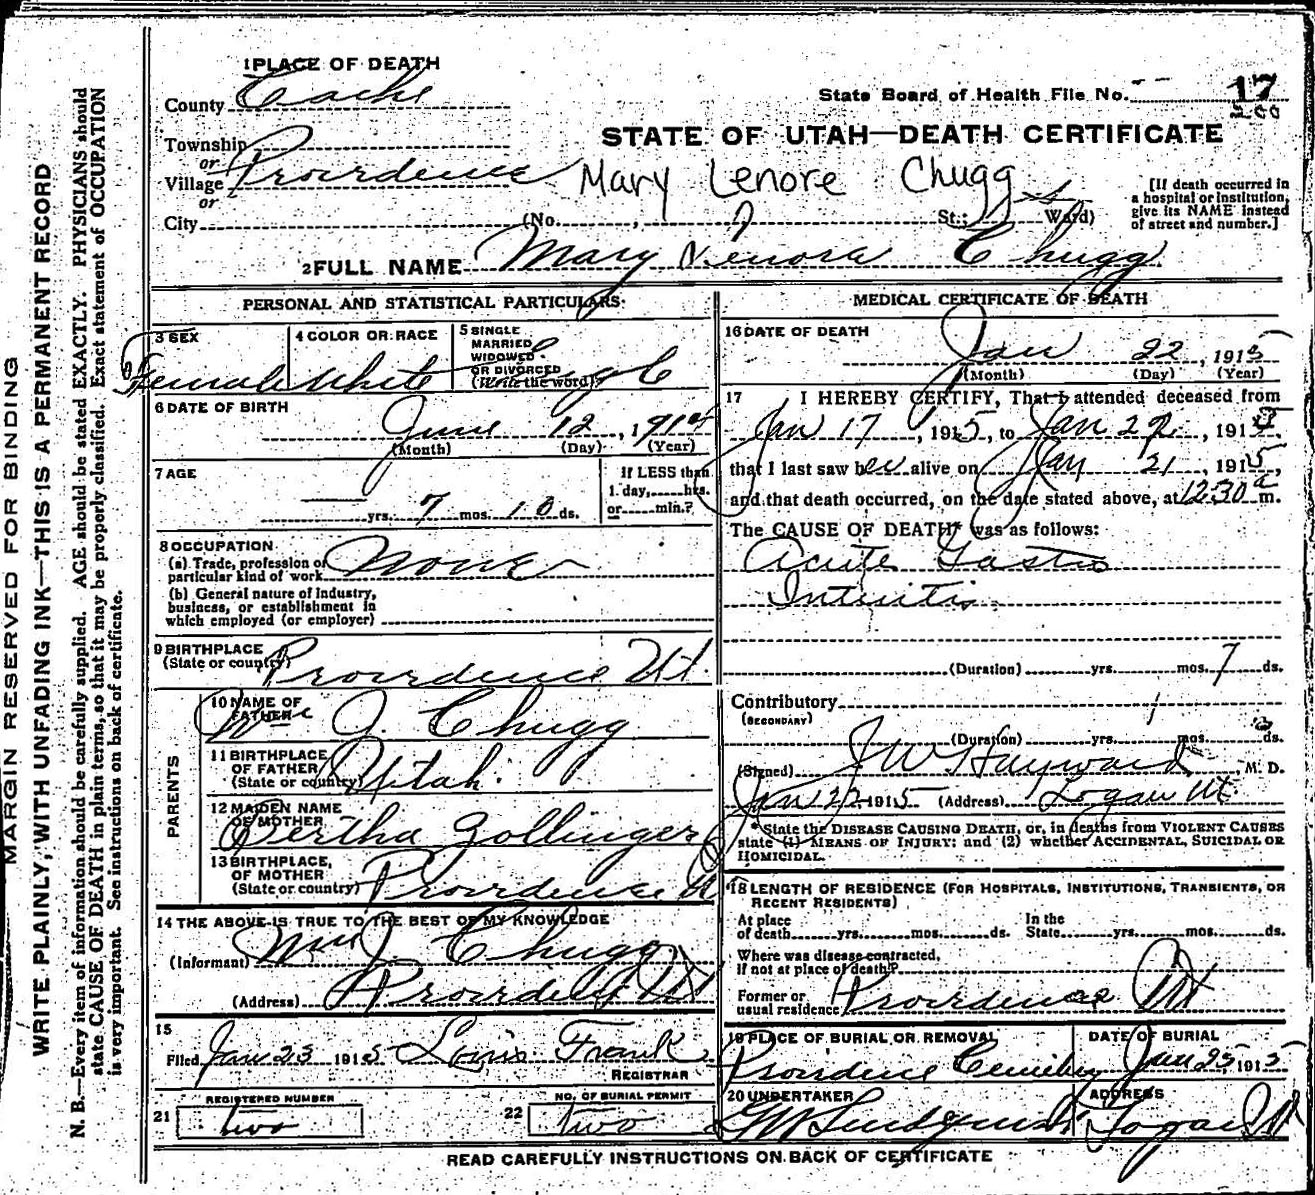 MARGIN RESERVED FOR BINDING
WRITE PLAINLY, WITH UNFADING INK—THIS IS A PERMANENT RECORD
N. B.—Every item of information should be carefully supplied. AGE should be stated EXACTLY. PHYSICIANS should
state CAUSE OF DEATH in plain terms, so that it may be properly classified. Exact statement of OCCUPATION
is very important. See instructions on back of certificate.
1 PLACE OF DEATH
County Cache
State Board of Health File No. 17
STATE OF UTAH—DEATH CERTIFICATE
Township
or
Village Providence
or
City
Mary Lenore Chugg
(No. St.; Ward)
[If death occurred in
a hospital or institution,
give its NAME instead
of street and number.]
2 FULL NAME Mary Lenora Chugg
PERSONAL AND STATISTICAL PARTICULARS
3 SEX
Female
4 COLOR OR RACE
White
5 SINGLE
MARRIED
WIDOWED
OR DIVORCED
(Write the word)
Single
6 DATE OF BIRTH
June 12, 191
(Month) (Day) (Year)
7 AGE
yrs. 7 mos. 10 ds.
If LESS than
1 day, hrs.
or min.?
8 OCCUPATION
(a) Trade, profession or
particular kind of work None
(b) General nature of industry,
business, or establishment in
which employed (or employer)
9 BIRTHPLACE
(State or country) Providence Ut.
PARENTS
10 NAME OF
FATHER Wm J. Chugg
11 BIRTHPLACE
OF FATHER
(State or country) Utah.
12 MAIDEN NAME
OF MOTHER Bertha Zollinger
13 BIRTHPLACE
OF MOTHER
(State or country) Providence Ut
14 THE ABOVE IS TRUE TO THE BEST OF MY KNOWLEDGE
(Informant) Wm J. Chugg
(Address) Providence Ut
15
Filed Jan 23 1915 Louis Frank
REGISTRAR
21 REGISTERED NUMBER
two
22 NO. OF BURIAL PERMIT
two
MEDICAL CERTIFICATE OF DEATH
16 DATE OF DEATH
Jan 22, 1915
(Month) (Day) (Year)
17 I HEREBY CERTIFY, That I attended deceased from
Jan 17, 1915, to Jan 22, 1915
that I last saw her alive on Jan 21, 1915,
and that death occurred, on the date stated above, at 12.30 a m.
The CAUSE OF DEATH* was as follows:
Acute Gastro
Intiritis
(Duration) yrs. mos. 7 ds.
Contributory
(SECONDARY)
(Duration) yrs. mos. ds.
(Signed) J W Hayward M. D.
Jan 22 1915 (Address) Logan Ut.
* State the DISEASE CAUSING DEATH, or, in deaths from VIOLENT CAUSES
state (1) MEANS OF INJURY; and (2) whether ACCIDENTAL, SUICIDAL OR
HOMICIDAL.
18 LENGTH OF RESIDENCE (FOR HOSPITALS, INSTITUTIONS, TRANSIENTS, OR
RECENT RESIDENTS)
At place
of death yrs. mos. ds.
In the
State yrs. mos. ds.
Where was disease contracted,
if not at place of death?
Former or
usual residence Providence Ut
19 PLACE OF BURIAL OR REMOVAL
Providence Cemetery
DATE OF BURIAL
Jan 25, 1915
20 UNDERTAKER
ADDRESS
Logan Ut
READ CAREFULLY INSTRUCTIONS ON BACK OF CERTIFICATE